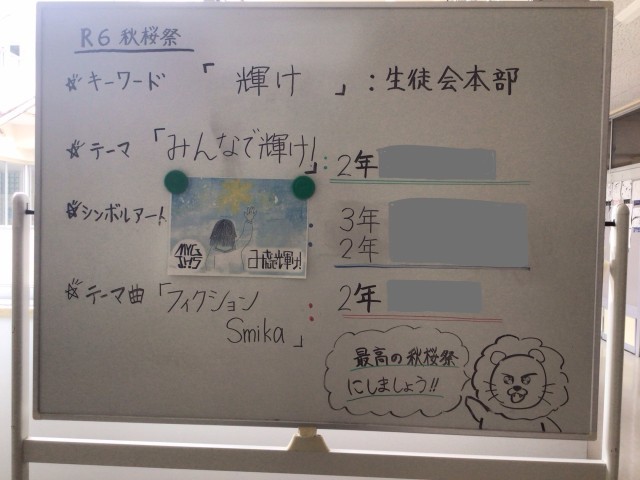 R6 秋桜祭
☆ キーワード 「 輝け 」 : 生徒会本部
☆ テーマ 「みんなで輝け!」 : 2年
☆ シンボルアート : 3年
2年
輝け!
☆ テーマ曲 「フィクション : 2年
Smika」
最高の秋桜祭
にしましょう!!